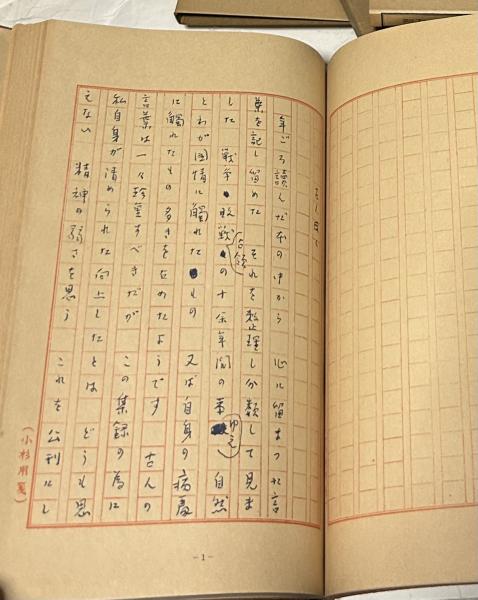 年ごろ讀んだ本の中から 心に留まつた言
葉を記し留めた それを整理し分類して見ま
した 戦争 敗戦 占領 の十余年間の 自然
とわが国情に觸れた もの 又は自身の病
に觸れたもの多きを占めたようです 古人の
言葉は一々珍重すべきだが この集録の為に
私自身が清められた向上したとは どうも思
えない 精神の弱さを思う これを公刊にし
(小杉用箋)
-1-